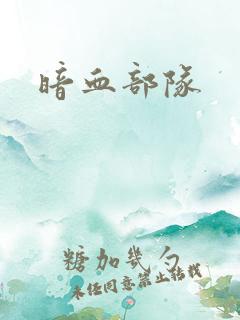 暗血部隊
糖加幾勺
未经同意禁止转载